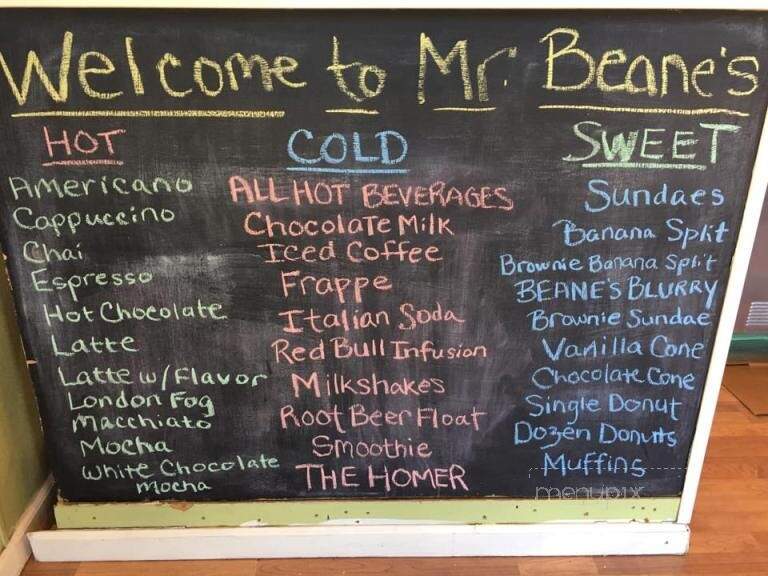 Welcome to Mr. Beane's
HOT
Americano
Cappuccino
Chai
Espresso
Hot Chocolate
Latte
Latte w/Flavor
London Fog
Macchiato
Mocha
White Chocolate
Mocha
COLD
ALL HOT BEVERAGES
Chocolate Milk
Iced Coffee
Frappe
Italian Soda
Red Bull Infusion
Milkshakes
Root Beer Float
Smoothie
THE HOMER
SWEET
Sundaes
Banana Split
Brownie Banana Split
BEANE'S BLURRY
Brownie Sundae
Vanilla Cone
Chocolate Cone
Single Donut
Dozen Donuts
Muffins
menupix